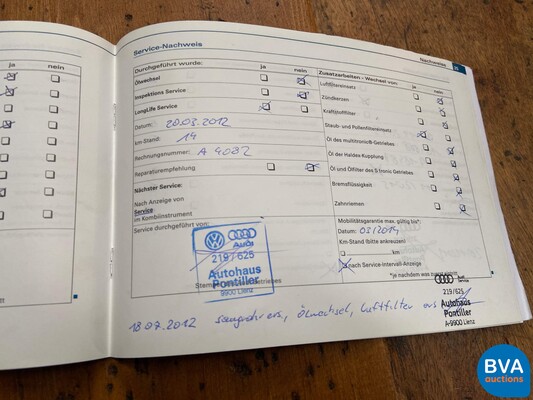 ja nein
Service-Nachweis
Nachweise
Durchgeführt wurde: ja nein
Ölwechsel
Inspektions Service
LongLife Service
Datum: 20.03.2012
km-Stand: 14
Rechnungsnummer: A 4082
Reparaturempfehlung
Nächster Service:
Nach Anzeige von
Service
im Kombiinstrument
Service durchgeführt von:
Audi
219/625
Autohaus
Pontiller
9900 Lienz
Zusatzarbeiten - Wechsel von: ja nein
Luftfiltereinsatz
Zündkerzen
Kraftstofffilter
Staub- und Pollenfiltereinsatz
Öl des multitronic®-Getriebes
Öl der Haldex Kupplung
Öl und Ölfilter des S tronic Getriebes
Bremsflüssigkeit
Zahnriemen
Mobilitätsgarantie max. gültig bis*:
Datum: 03/2014
Km-Stand (bitte ankreuzen)
km
nach Service-Intervall-Anzeige
*je nachdem was zuerst eintritt
18.07.2012 Ölwechsel, Luftfilter ers
Audi Service
219/625
Autohaus
Pontiller
A-9900 Lienz
BVA
auctions